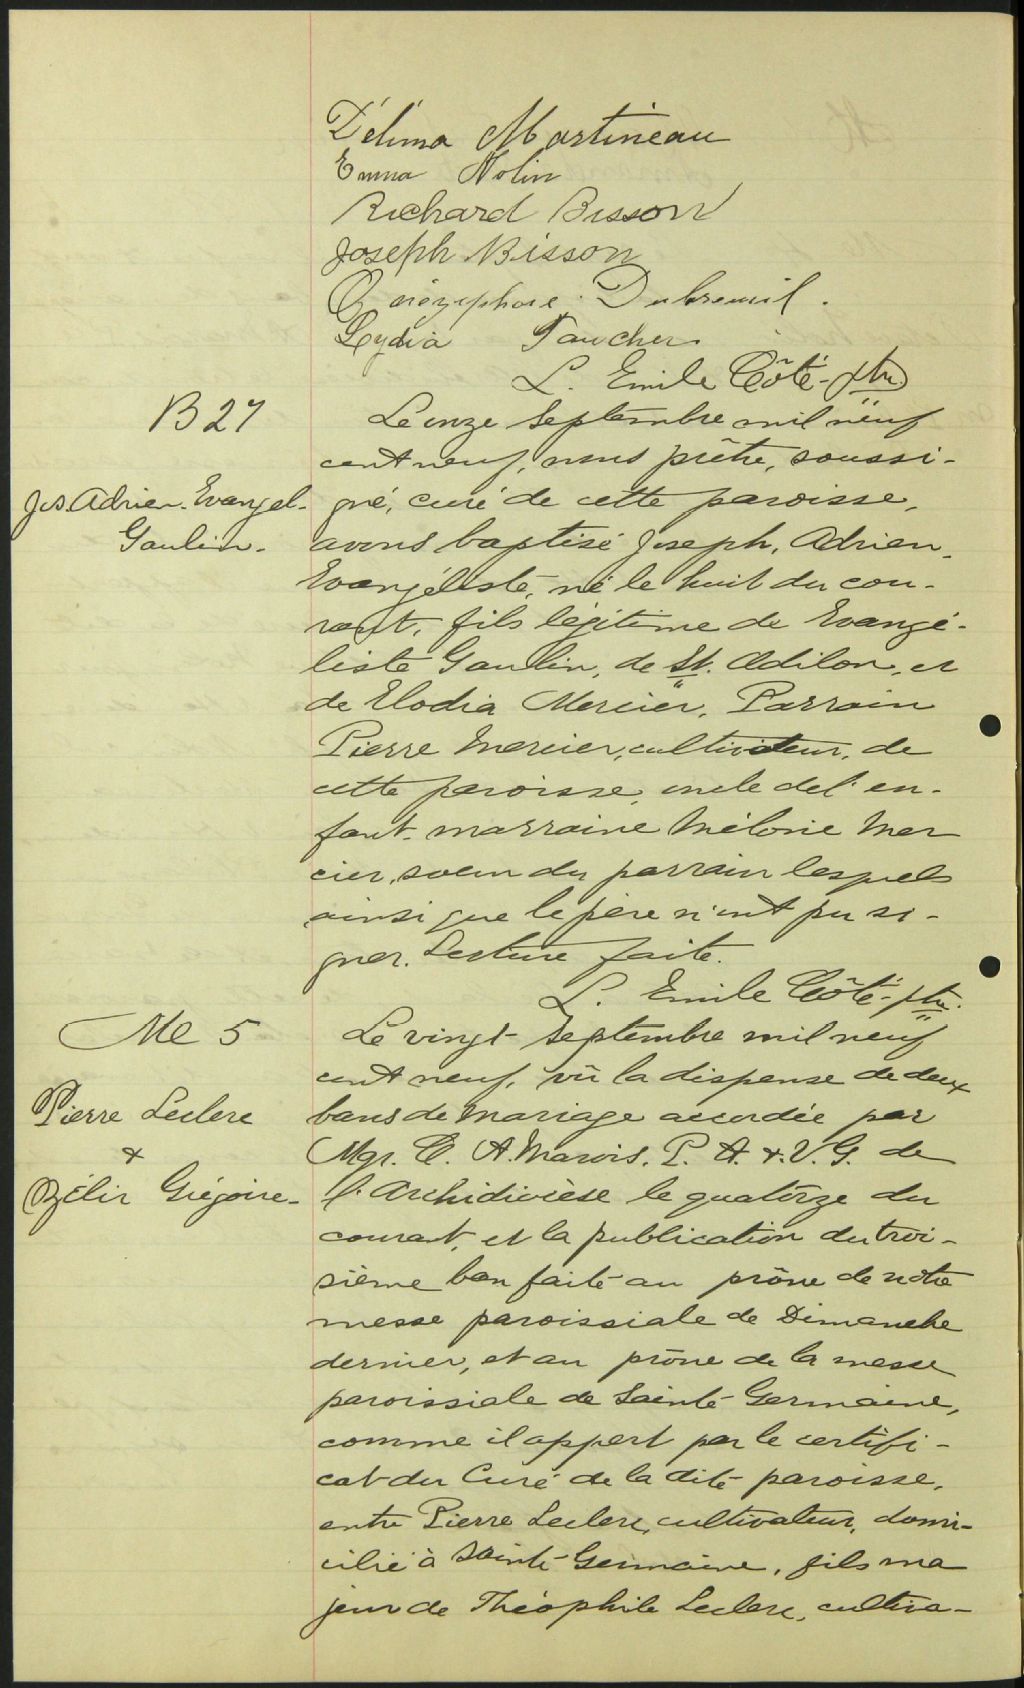 Délima Martineau
Emma Nolin
Richard Bisson
Joseph Bisson
Onézyphore Dubreuil.
Lydia Faucher
L. Emile Côté-ptre
B 27
Le onze Septembre mil neuf
cent neuf, nous prêtre, soussi-
Jos. Adrien. Evangel-
gné, curé de cette paroisse,
Gaulin.
avons baptisé Joseph, Adrien,
Evangéliste, né le huit du cou-
rant, fils légitime de Evangé-
liste Gaulin, de St. Odilon, et
de Elodia Mercier, Parrain
Pierre Mercier, cultivateur, de
cette paroisse, oncle de l'en-
fant. marraine Mélonie Mer
cier, soeur du parrain lesquels
ainsi que le père n'ont pu si-
gner. Lecture faite.
L. Emile Côté-ptre.
M 5
Le vingt Septembre mil neuf
cent neuf, vû la dispense de deux
Pierre Leclerc
bans de mariage accordée par
&
Mgr. C. A. Marois. P. A. & V. G. de
Zélir Grégoire-
l'Archidiocèse le quatorze du
courant, et la publication du troi-
sième ban faite au prône de notre
messe paroissiale de Dimanche
dernier, et au prône de la messe
paroissiale de Sainte-Germaine,
comme il appert par le certifi-
cat du Curé de la dite paroisse,
entre Pierre Leclerc, cultivateur, domi-
cilié à Sainte-Germaine, fils ma
jeur de Théophile Leclerc, cultiva-